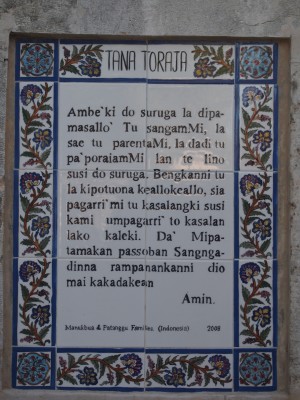 TANA TORAJA
Ambe`ki do suruga la dipa-
masallo` Tu sangamMi, la
sae tu parentaMi, la dadi tu
pa`poraiamMi lan te lino
susi do suruga. Bengkanni tu
la kipotuona keallokeallo, sia
pagarri`mi tu kasalangki susi
kami umpagarri` to kasalan
lako kaleki. Da` Mipa-
tamakan passoban Sangnga-
dinna rampanankanni dio
mai kakadakean
Amin.
& Families, (Indonesia) 2008